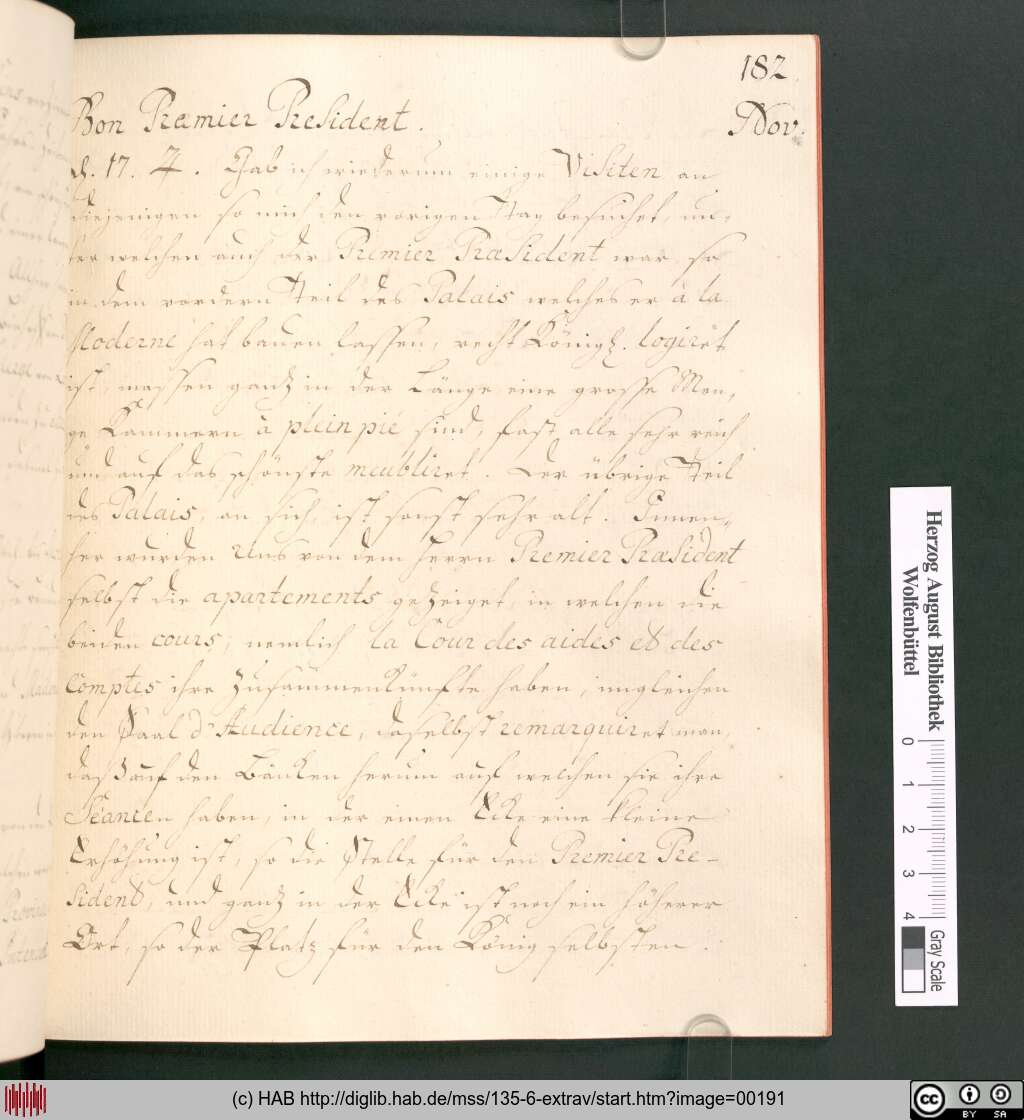 182.
Von Premier President.
Nov.
d. 17. ♃. Gab ich wiederum einige Visiten an
diejenigen so mich den vorigen Tag besuchet, un-
ter welchen auch der Premier Præsident war, so
in dem vordern Theil des Palais welches er à la
Moderne hat bauen lassen, recht Königl. logiret
ist, massen gantz in der Länge eine grosse Men-
ge Kammern à plein pié sind, fast alle sehr reich
und auf das schönste meubliret. Der übrige Theil
des Palais, an sich, ist sonst sehr alt. Innen-
her wurden Uns von dem Herrn Premier Præsident
selbst die apartements gezeiget, in welchen die
beiden cours, nemlich la Cour des aides et des
Comptes ihre Zusammenkünfte haben, imgleichen
den Saal d'Audience, daselbst remarquiret man,
daß auf den Bänken herum auf welchen sie ihre
Séancen haben, in der einen Ecke eine kleine
Erhöhung ist, so die Stelle für den Premier Pre-
sident, und gantz in der Ecke ist noch ein höherer
Ort, so der Platz für den König selbsten.
Herzog August Bibliothek
Wolfenbüttel
0 1 2 3 4
Gray Scale
(c) HAB http://diglib.hab.de/mss/135-6-extrav/start.htm?image=00191
cc BY SA